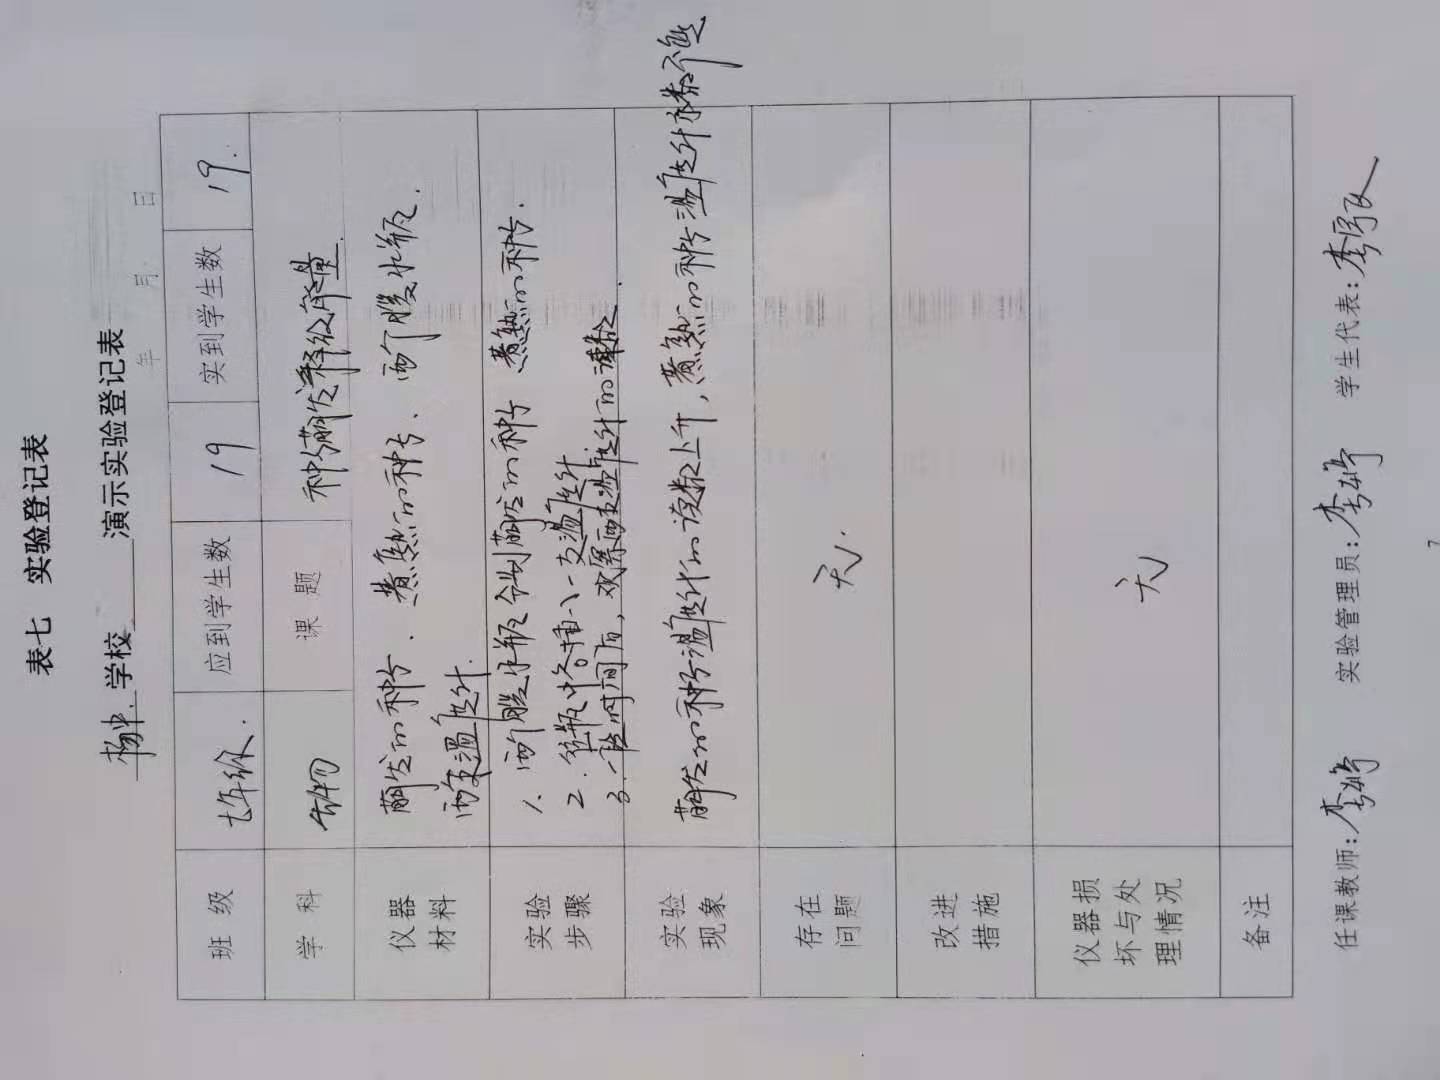 表七 实验登记表
杨中.学校 演示实验登记表
年 月 日
班级 七年级. 应到学生数 19 实到学生数 19.
学科 生物 课题 种子萌发释放能量.
仪器材料 萌发的种子.煮熟的种子.两个暖水瓶.
两支温度计.
实验步骤 1.两个暖水瓶分别萌发的种子 煮熟的种子.
2.往瓶中各插入一支温度计
3.一段时间后,观察两支温度计的读数.
实验现象 萌发的种子温度计的读数上升,煮熟的种子温度计读数不变
存在问题 无.
改进措施
仪器损坏与处理情况 无
备注
任课教师:李婷 实验管理员:李婷 学生代表:李
7